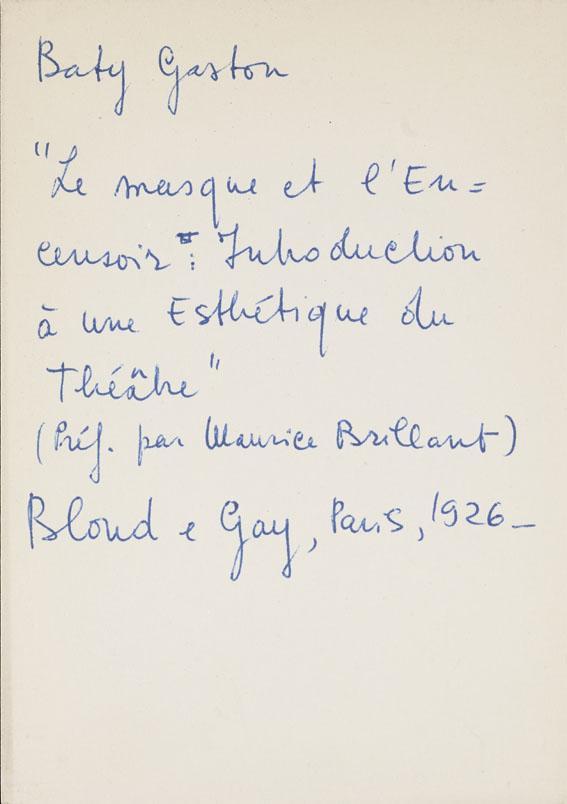 Baty Gaston
"Le masque et l'En=
censoir": Introduction
à une Esthétique du
Théâtre"
(Préf. par Maurice Brillant)
Bloud e Gay, Paris, 1926_